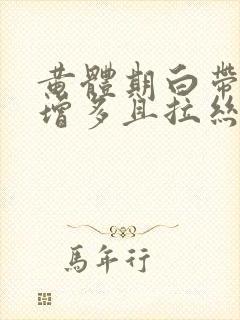 黄體期白帶
增多且拉絲
馬年行